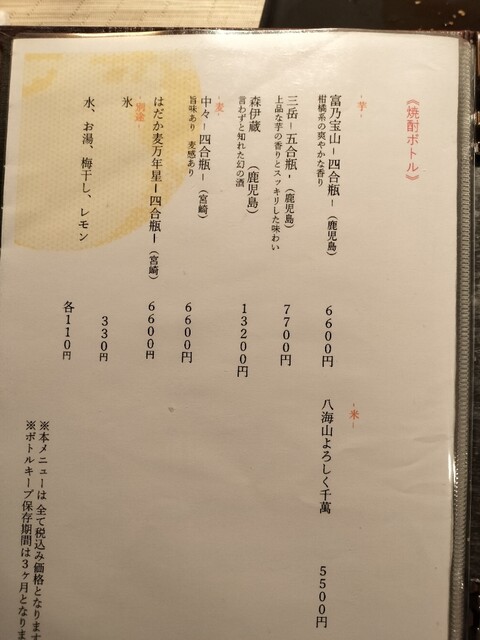 《焼酎ボトル》
-芋-
富乃宝山－四合瓶－(鹿児島) 6600円
柑橘系の爽やかな香り
三岳－五合瓶・(鹿児島) 7700円
上品な芋の香りとスッキリした味わい
森伊蔵 (鹿児島) 13200円
言わずと知れた幻の酒
-麦-
中々－四合瓶－(宮崎) 6600円
旨味あり 麦感あり
はだか麦万年星－四合瓶－(宮崎) 6600円
-別途-
氷 330円
水、お湯、梅干し、レモン 各110円
-米-
八海山よろしく千萬 5500円
※本メニューは全て税込み価格となります
※ボトルキープ保存期間は3ヶ月となりま